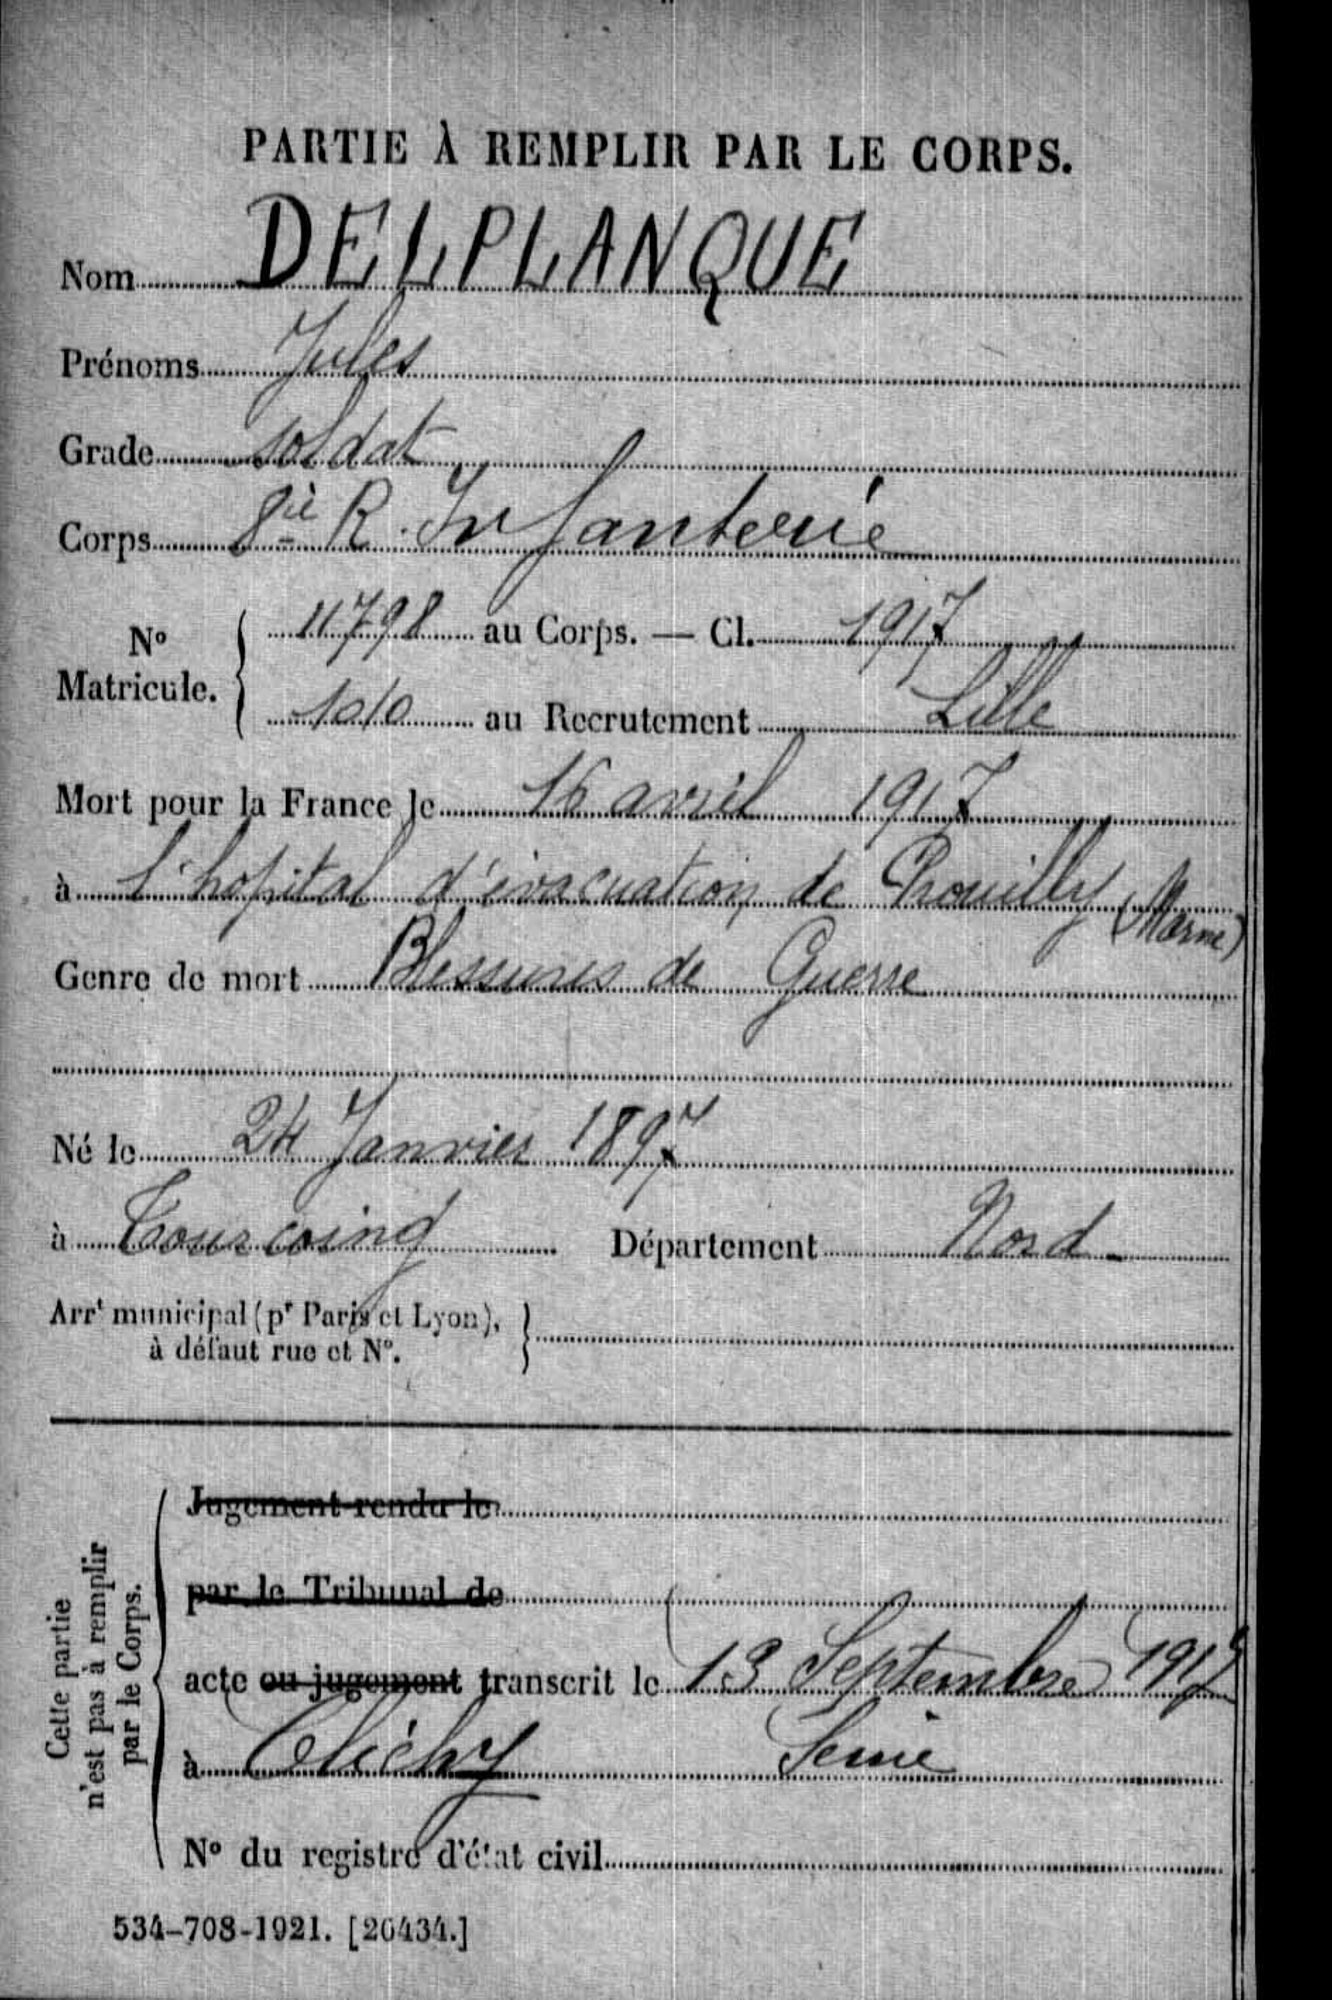 PARTIE À REMPLIR PAR LE CORPS.
Nom DELPLANQUE
Prénoms Jules
Grade soldat
Corps 8iè R. Infanterie
No Matricule. { 11798 au Corps. — Cl. 1917
1010 au Recrutement Lille
Mort pour la France le 16 avril 1917
à l'hopital d'évacuation de Prouilly (Marne)
Genre de mort Blessures de Guerre
Né le 24 Janvier 1897
à Tourcoing Département Nord
Arrt municipal (pr Paris et Lyon),
à défaut rue et No. }
Cette partie
n'est pas à remplir
par le Corps.
Jugement rendu le
par le Tribunal de
acte ou jugement transcrit le 13 Septembre
à Clichy Seine
No du registre d'état civil
534-708-1921. [26434.]